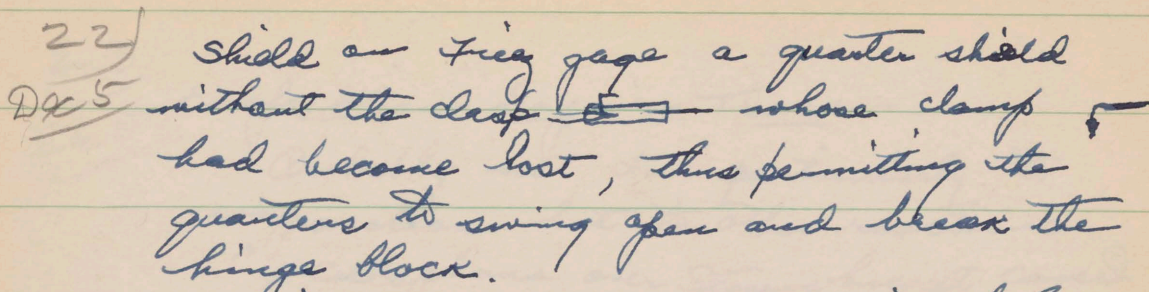 22
Dec 5
Shield on Friez gage a quarter shield
without the clasp whose clamp
had become lost, thus permitting the
quarters to swing open and break the
hinge block.